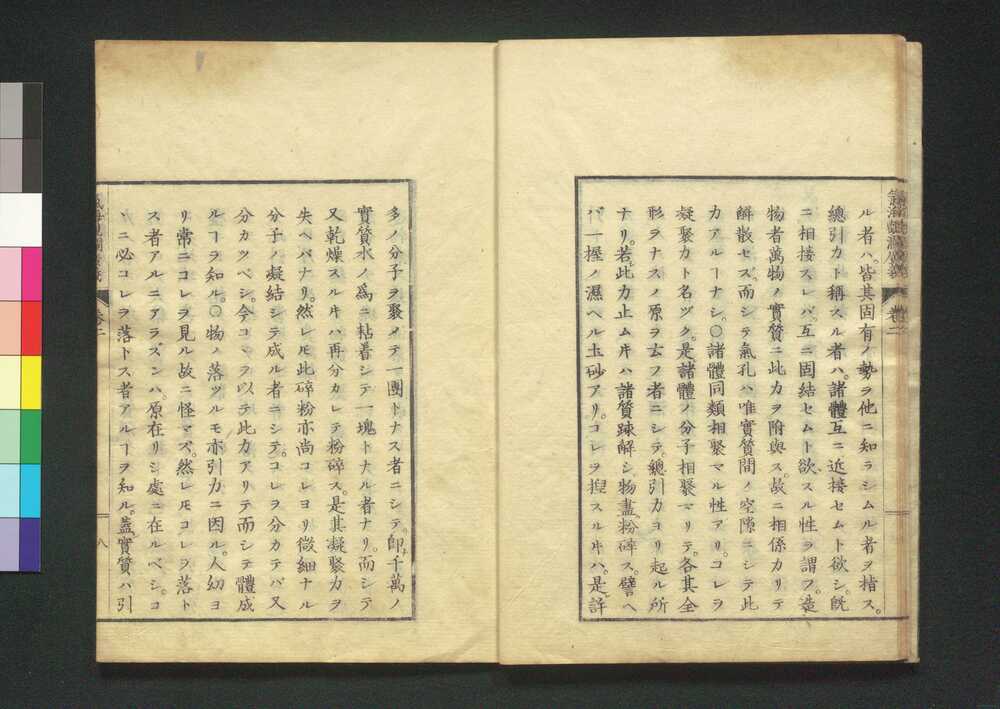 ル者ハ。皆其固有ノ勢ヲ他ニ知ラシムル者ヲ指ス。
總引力ト稱スル者ハ。諸體互ニ近接セムト欲シ。既
ニ相接スレバ。互ニ固結セムト欲スル性ヲ謂フ。造
物者萬物ノ實質ニ此力ヲ附與ス。故ニ相係カリテ
解散セズ。而シテ氣孔ハ唯實質間ノ空隙ニシテ此
力アルヿナシ。〇諸體同類相聚マル性アリ。コレヲ
凝聚力ト名ヅク。是諸體ノ分子相聚マリテ。各其全
形ヲナスノ原ヲ云フ者ニシテ。總引力ヨリ起ル所
ナリ。若此力止ムㇸハ諸質疎解シ。物盡粉碎ス。譬ヘ
バ一握ノ濕ヘル土砂アリ。コレヲ揑スルㇸハ。是許
多ノ分子ヲ聚メテ一團トナス者ニシテ。即千萬ノ
實質水ノ爲ニ粘着シテ一塊トナル者ナリ。而シテ
又乾燥スルㇸハ再分カレテ粉碎ス。是其凝聚力ヲ
失ヘバナリ。然レ𪜈此碎粉亦尚コレヨリ微細ナル
分子ノ凝結シテ成ル者ニシテ。コレヲ分カテバ又
分カツベシ。今コヽヲ以テ此力アリテ而シテ體成
ルヿヲ知ル。〇物ノ落ツルモ亦引力ニ因ル。人幼ヨ
リ常ニコレヲ見ル故ニ怪マズ。然レ𪜈コレヲ落ト
ス者アルニアラズンハ。原在リシ處ニ在ルベシ。コ
ヽニ必コレヲ落トス者アルヿヲ知ル。蓋實質ハ引
卷二
八